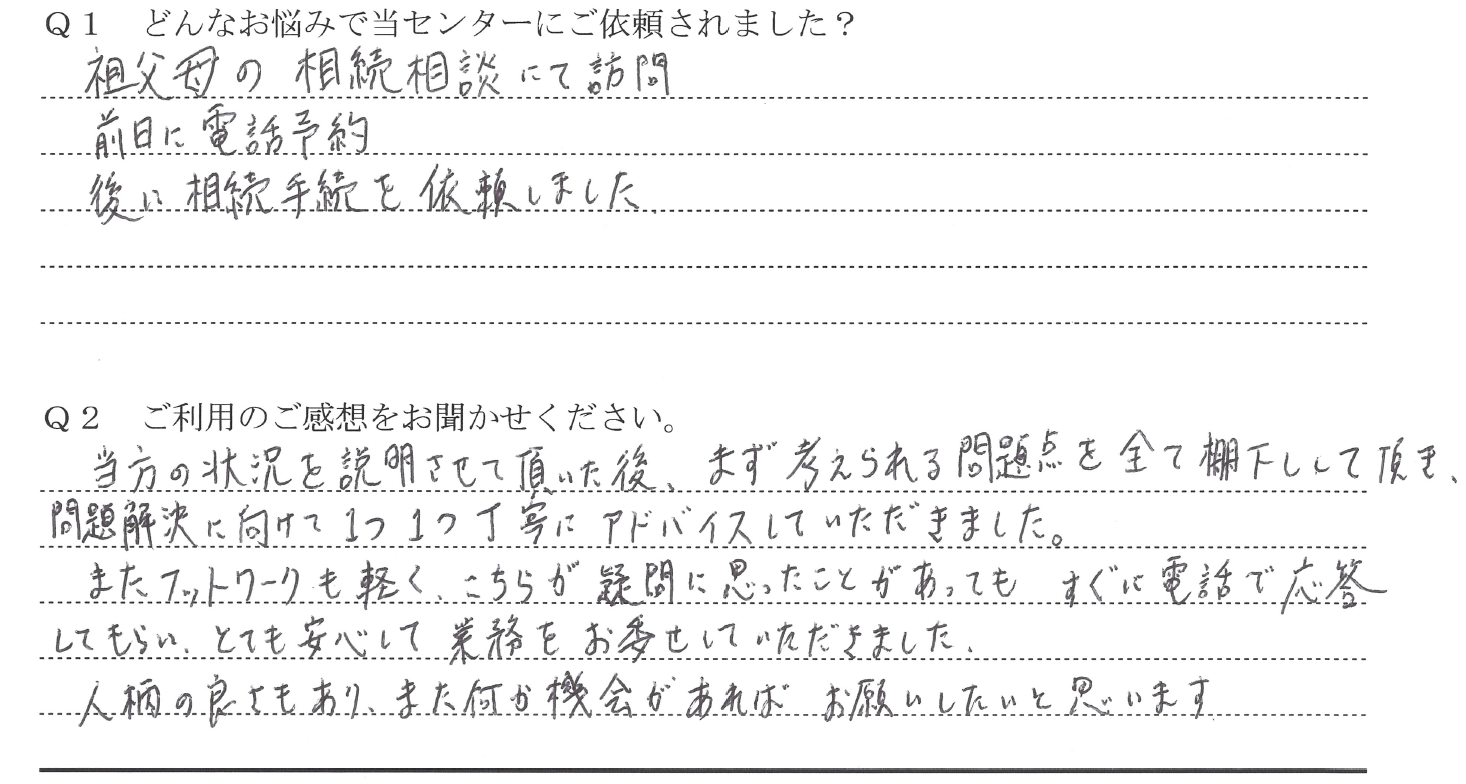 Q1 どんなお悩みで当センターにご依頼されました?
祖父母の相続相談にて訪問
前日に電話予約
後に相続手続を依頼しました.
Q2 ご利用のご感想をお聞かせください。
当方の状況を説明させて頂いた後、まず考えられる問題点を全て棚下しして頂き、
問題解決に向けて1つ1つ丁寧にアドバイスしていただきました。
またフットワークも軽く、こちらが疑問に思ったことがあっても すぐに電話で応答
してもらい、とても安心して業務をお委せしていただきました.
人柄の良さもあり、また何か機会があれば お願いしたいと思います